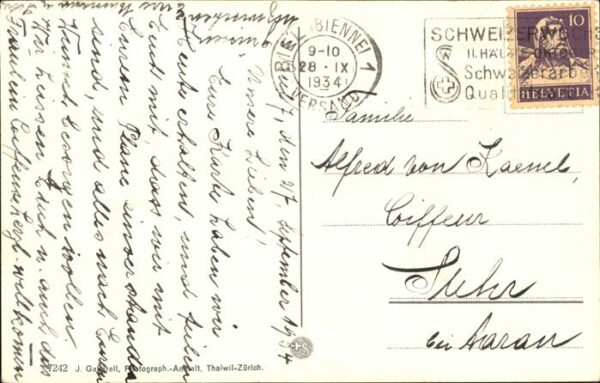 Biel 7, den 27. September 1934
Unsere Lieben!
Eure Karte haben wir
heute erhalten, und teilen
Euch mit, dass wir mit
Eurem Plane einverstanden
sind, und alles nach Euren
Wunsch besorgen wollen
Wir heissen Euch u. auch das
Fräulein willkommen
BIEL BIENNE 1
9-10
28. IX
1934
VERSAND
SCHWEIZERWOCHE
II. HÄLFTE OKTOBER
Schweizerarbeit
Qualität
10
HELVETIA
Familie
Alfred von Kaenel,
Coiffeur
Suhr
bei Aarau
7242 J. Gaberell, Photograph.-Anstalt, Thalwil-Zürich.